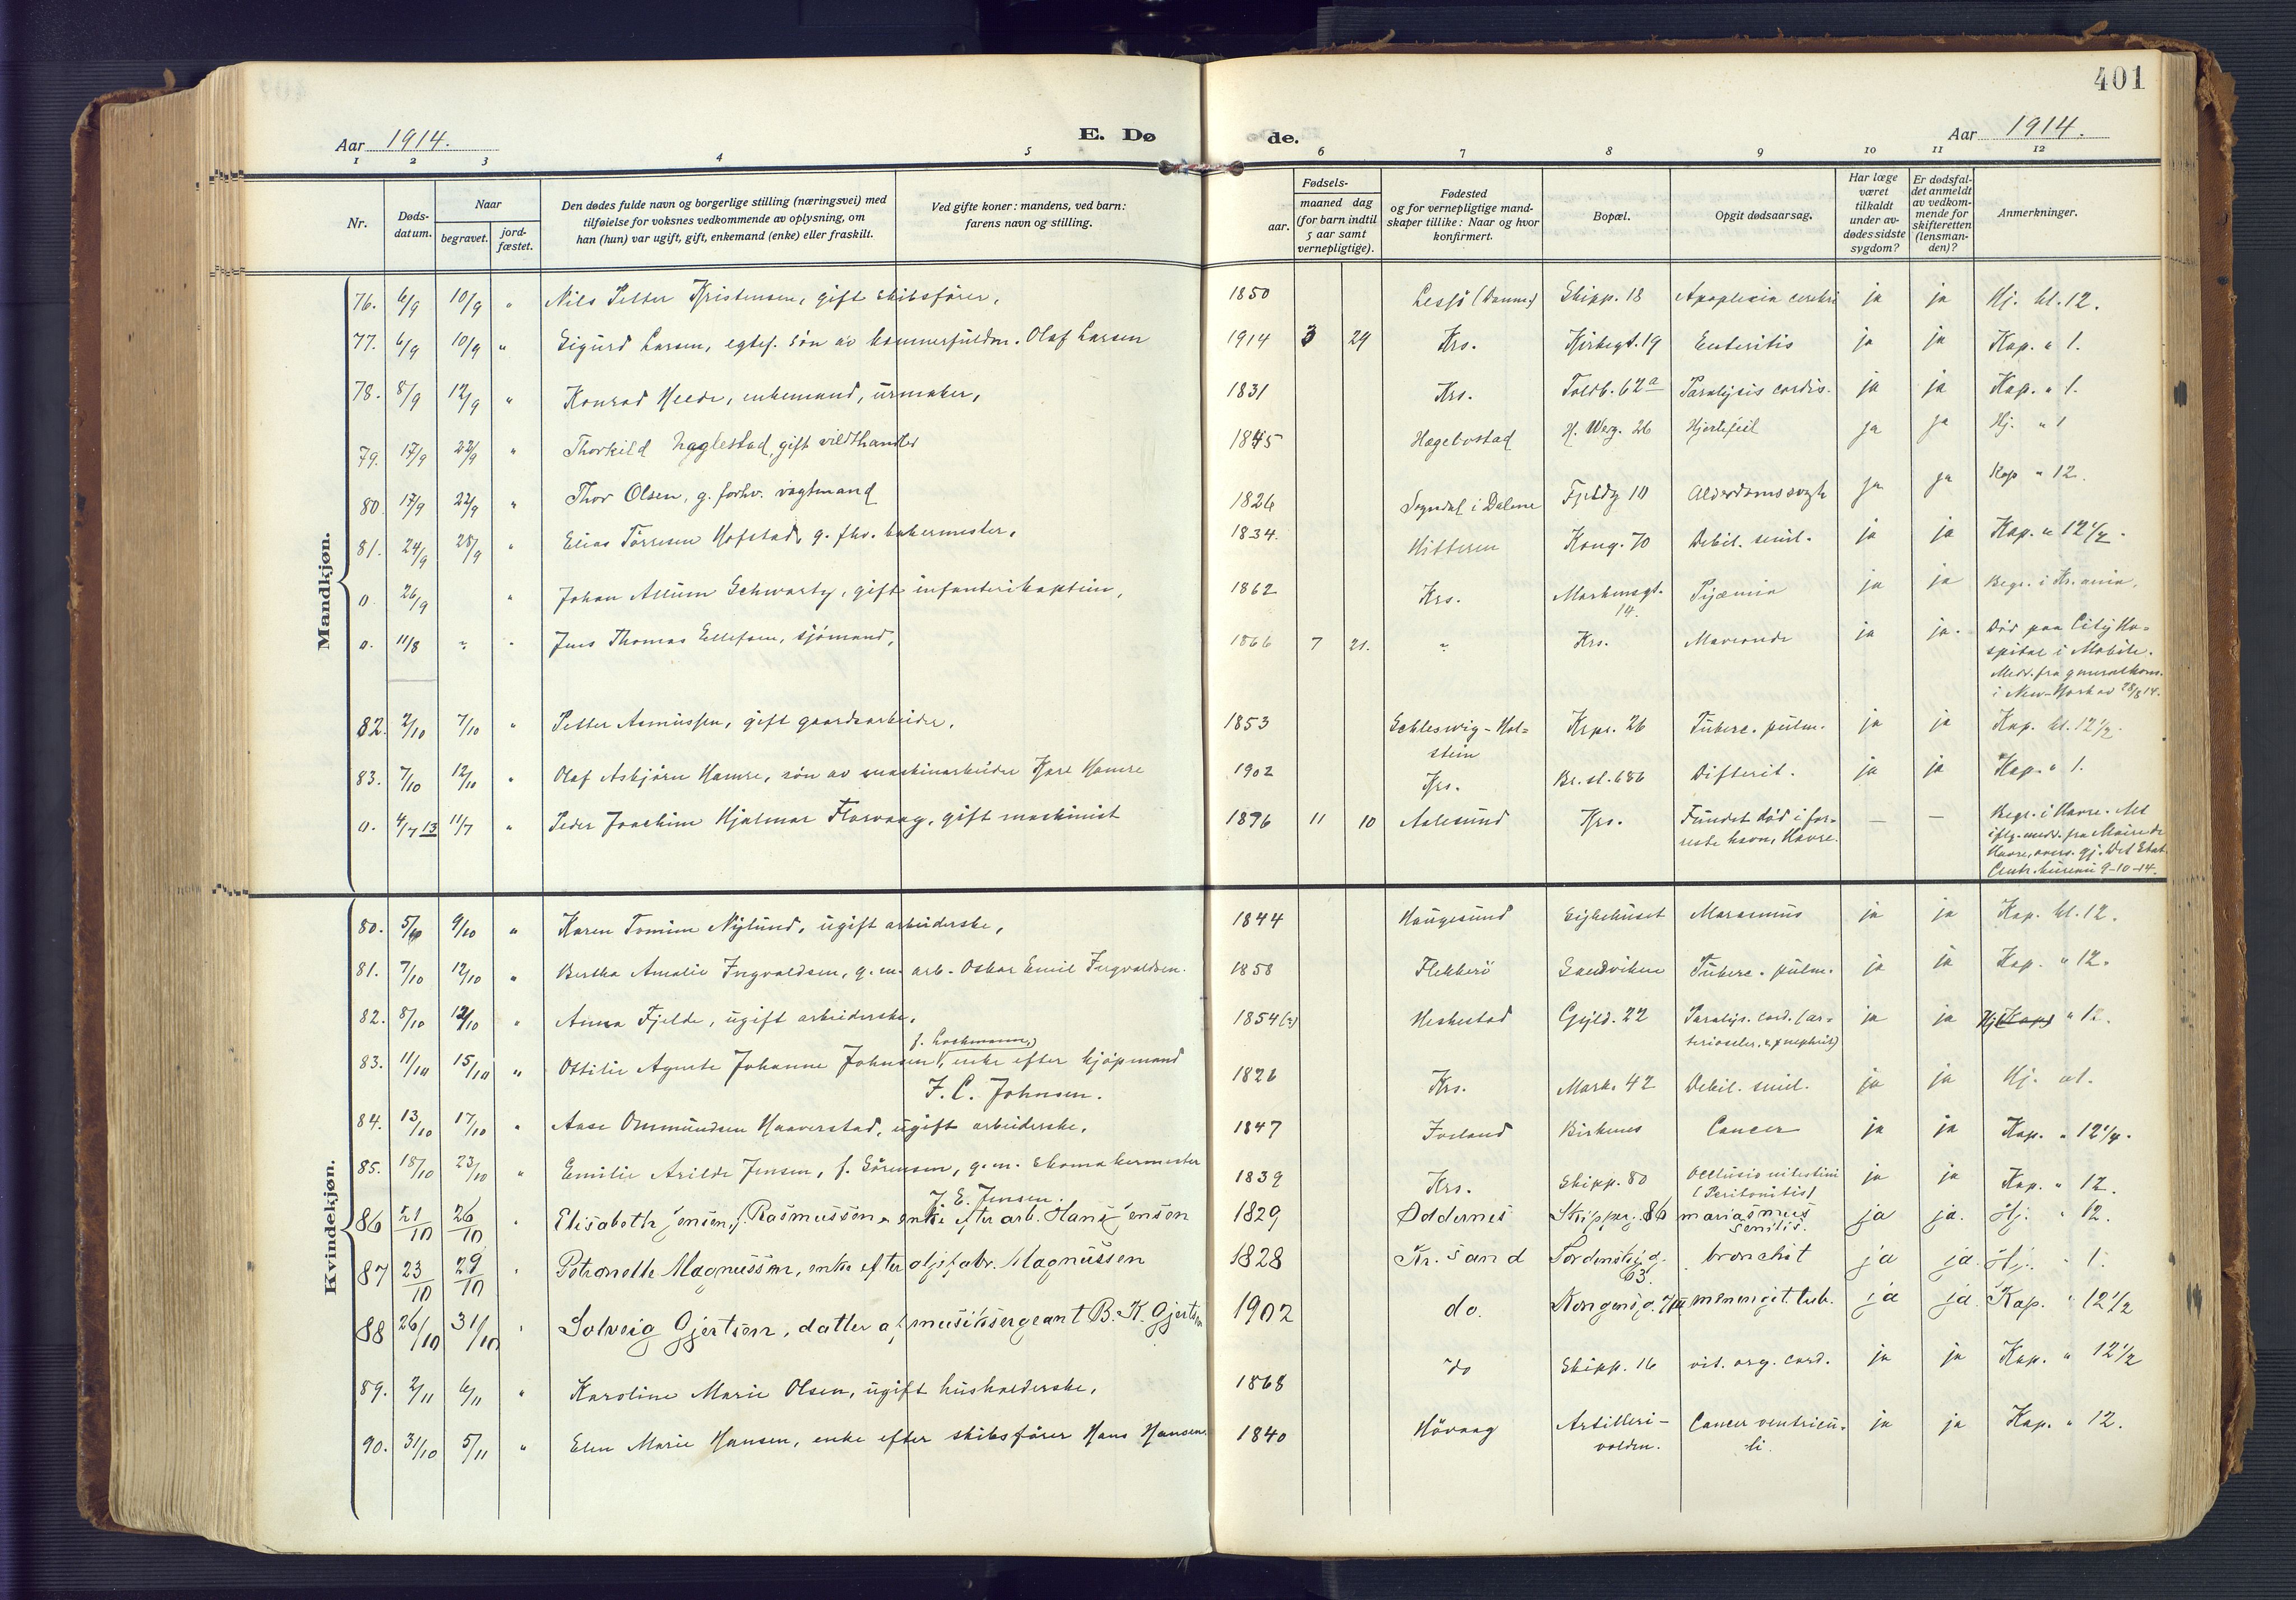 401
Aar 1914. E. Dø de. Aar 1914.
1 2 3 4 5 6 7 8 9 10 11 12
Nr.
Døds-
datum.
Naar
begravet.
jord-
fæstet.
Den dødes fulde navn og borgerlige stilling (næringsvei) med
tilføielse for voksnes vedkommende av oplysning, om
han (hun) var ugift, gift, enkemand (enke) eller fraskilt.
Ved gifte koner: mandens, ved barn:
farens navn og stilling.
Fødsels-
aar.
maaned dag
(for barn indtil
5 aar samt
vernepligtige).
Fødested
og for vernepligtige mand-
skaper tillike: Naar og hvor
konfirmert.
Bopæl.
Opgit dødsaarsag.
Har læge
været
tilkaldt
under av-
dødes sidste
sygdom?
Er dødsfal-
det anmeldt
av vedkom-
mende for
skifteretten
(lensman-
den)?
Anmerkninger.
Mandkjøn.
76. 6/9 10/9 " Nils Petter Kristensen, gift skibsfører, 1850 Skipp. 18 Apoplexia cerebri ja ja Hj. kl. 12.
77. 6/9 10/9 " Sigurd Larsen, egtef. søn av Olaf Larsen 1914 3 29 Krs. Kirkegt. 19 Enteritis ja ja Kap. " 1.
78. 8/9 12/9 " Konrad Heede, enkemand, urmaker, 1831 Krs. Toldb. 62a Paralysis cordis. ja ja Kap. " 1.
79. 17/9 22/9 " Thorkild Haglestad, gift vildthandler 1845 Hægebostad H. Werg. 26 Hjertefeil ja ja Hj. " 1
80 17/9 22/9 " Thor Olsen, g. forhv. vagtmand 1826 Sogndal i Dalene Fjeldg 10 Alderdomssvagh ja ja Kap " 12.
81. 24/9 28/9 " Elias Tørresen Hofstad, g. fhv. bakermester, 1834. Hitteren Kong. 70 Debil. senil. ja ja Kap. " 12 1/2.
0. 26/9 " Johan Allum Schwartz, gift infanterikaptein, 1862 Krs. Markensgt.
14.
Pyæmia ja ja Begr. i Kr.ania.
0. 11/8 " " Jens Thomas Ellefsen, sjømand, 1866 7 21. " Krs. Mavesaar ja ja. Død paa City Ho-
spital i Mobile.
Medd. fra generalkons.
i New-York av 28/8 14.
82. 2/10 7/10 " Petter Asmussen, gift gaardsarbeider, 1853 Schleswig-Hol-
stein
Krpr. 26 Tuberc. pulm. ja ja Kap. kl. 12 1/2.
83. 7/10 12/10 " Olaf Asbjørn Hamre, søn av maskinarbeider Kare Hamre 1902 Krs. Br. st. 686 Difterit. ja ja Kap. " 1.
0. 4/7 13 11/7 " Peder Joachim Hjalmar Florvaag, gift maskinist 1876 11 10 Aalesund Krs. Fundet død i for-
reste havn, Havre.
— — Begr. i Havre. Alt
iflg. medd. fra Maire de
Havre, overs. gj. Det Stat.
Centr. bureau 9-10-14.
Kvindekjøn.
80. 5/10 9/10 " Karen Tomine Nylund, ugift arbeiderske, 1844 Haugesund Sykehuset Marasmus ja ja Kap. kl. 12.
81. 7/10 12/10 " Bertha Amalie Ingvaldsen, g. m. arb. Oskar Emil Ingvaldsen. 1858 Flekkerø Sandviken Tuberc. pulm. ja ja Kap. " 12.
82. 8/10 12/10 " Anna Fjelde, ugift arbeiderske, 1854(?) Heskestad Gyld. 22 Paralys. cord. (ar-
terioscler. & nephrit) ja ja Hj. Kap. " 12.
f. Lochmann,
83. 11/10 15/10 " Ottilie Agnete Johanne Johnsen, enke efter kjøpmand
F. C. Johnsen.
1826 Krs. Mark. 42 Debil. senil. ja ja Hj. " 1.
84. 13/10 17/10 " Aase Omundsen Haaverstad, ugift arbeiderske, 1847 Iveland Birkenes Cancer ja ja Kap. " 12 1/4.
85. 18/10 23/10 " Emilie Arilde Jensen, f. Sørensen, g. m. skomakermester
J. E. Jensen.
1839 Krs. Skipp. 80 Occlusio intestini
(Peritonitis) ja ja Kap. " 12.
86 21/10 26/10 " Elisabeth Jensen, f. Rasmussen, enke efter arb. Hans Jensen 1829 Oddernes Skipperg. 86 mariasmus
senilis. ja ja. Hj. " 12.
87 23/10 29/10 " Petronelle Magnussen, enke efter oljefabr. Magnussen 1828 Kr.sand Tordenskj.g.
63.
bronchit ja ja. Hj. " 1.
88 26/10 31/10 " Solveig Gjertsen, datter af musiksergeant B. K. Gjertsen 1902 do. Kongensg. meningit. tub. ja ja Kap. " 12 1/2
89. 2/11 6/11 " Karoline Marie Olsen, ugift husholderske, 1868 do Skipp. 16 vit. org. cord. ja ja Kap. " 12 1/2
90. 31/10 5/11 " Elen Marie Hansen, enke efter skibsfører Hans Hansen. 1840 Høvaag Artilleri-
volden.
Cancer ventricu-
li.
ja ja Kap. " 12.